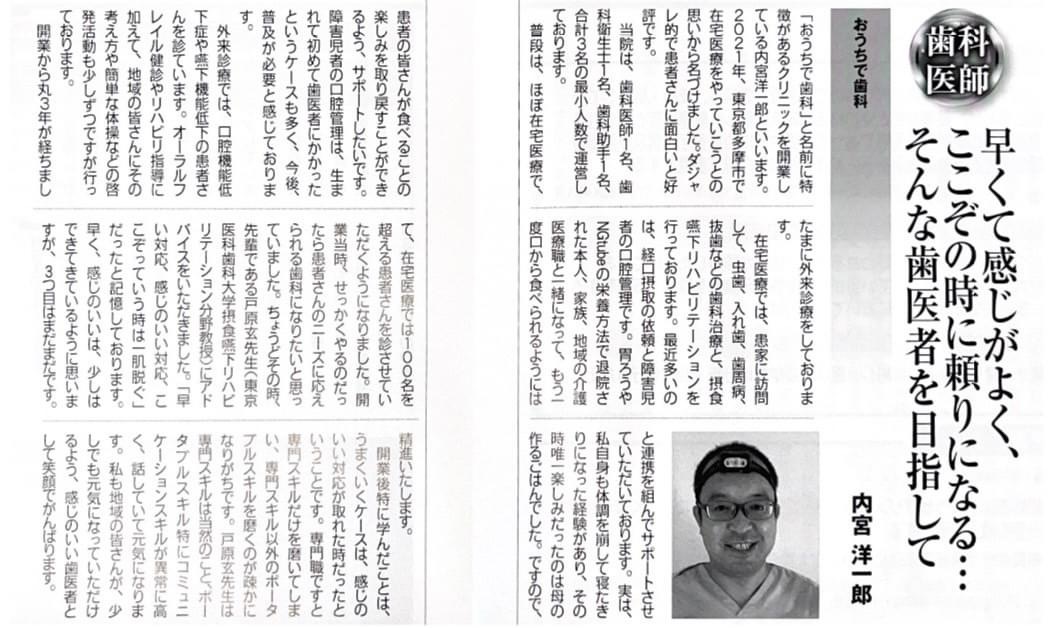 歯科
医師
早くて感じがよく、
ここぞの時に頼りになる…
そんな歯医者を目指して
おうちで歯科
内宮 洋一郎
「おうちで歯科」と名前に特
徴があるクリニックを開業し
ている内宮洋一郎といいます。
2021年、東京都多摩市で
在宅医療をやっていこうとの
思いから名づけました。ダジャ
レ的で患者さんに面白いと好
評です。
当院は、歯科医師1名、歯
科衛生士1名、歯科助手1名、
合計3名の最小人数で運営し
ております。
普段は、ほぼ在宅医療で、
たまに外来診療をしておりま
す。
在宅医療では、患家に訪問
して、虫歯、入れ歯、歯周病、
抜歯などの歯科治療と、摂食
嚥下リハビリテーションを
行っております。最近多いの
は、経口摂取の依頼と障害児
者の口腔管理です。胃ろうや
NGtubeの栄養方法で退院さ
れた本人、家族、地域の介護
医療職と一緒になって、もう一
度口から食べられるようには
と連携を組んでサポートさせ
ていただいております。実は、
私自身も体調を崩して寝たき
りになった経験があり、その
時唯一楽しみだったのは母の
作るごはんでした。ですので、
患者の皆さんが食べることの
楽しみを取り戻すことができ
るよう、サポートしたいです。
障害児者の口腔管理は、生ま
れて初めて歯医者にかかった
というケースも多く、今後、
普及が必要と感じておりま
す。
外来診療では、口腔機能低
下症や嚥下機能低下の患者さ
んを診ています。オーラルフ
レイル健診やリハビリ指導に
加えて、地域の皆さんにその
考え方や簡単な体操などの啓
発活動も少しずつですが行っ
ております。
開業から丸3年が経ちまし
て、在宅医療では100名を
超える患者さんを診させてい
ただくようになりました。開
業当時、せっかくやるのだっ
たら患者さんのニーズに応え
られる歯科になりたいと思っ
ていました。ちょうどその時、
先輩である戸原玄先生（東京
医科歯科大学摂食嚥下リハビ
リテーション分野教授）にアド
バイスをいただきました。「早
い対応、感じのいい対応、こ
こぞっていう時は一肌脱ぐ」
だったと記憶しております。
早く、感じのいいは、少しは
できてきているように思いま
すが、3つ目はまだまだです。
精進いたします。
開業後特に学んだことは、
うまくいくケースは、感じの
いい対応が取れた時だったと
いうことです。専門職ですと
専門スキルだけを磨いてしま
い、専門スキル以外のポータ
ブルスキルを磨くのが疎かに
なりがちです。戸原玄先生は
専門スキルは当然のこと、ポー
タブルスキル特にコミュニ
ケーションスキルが異常に高
く、話していて元気になりま
す。私も地域の皆さんが、少
しでも元気になっていただけ
るよう、感じのいい歯医者と
して笑顔でがんばります。